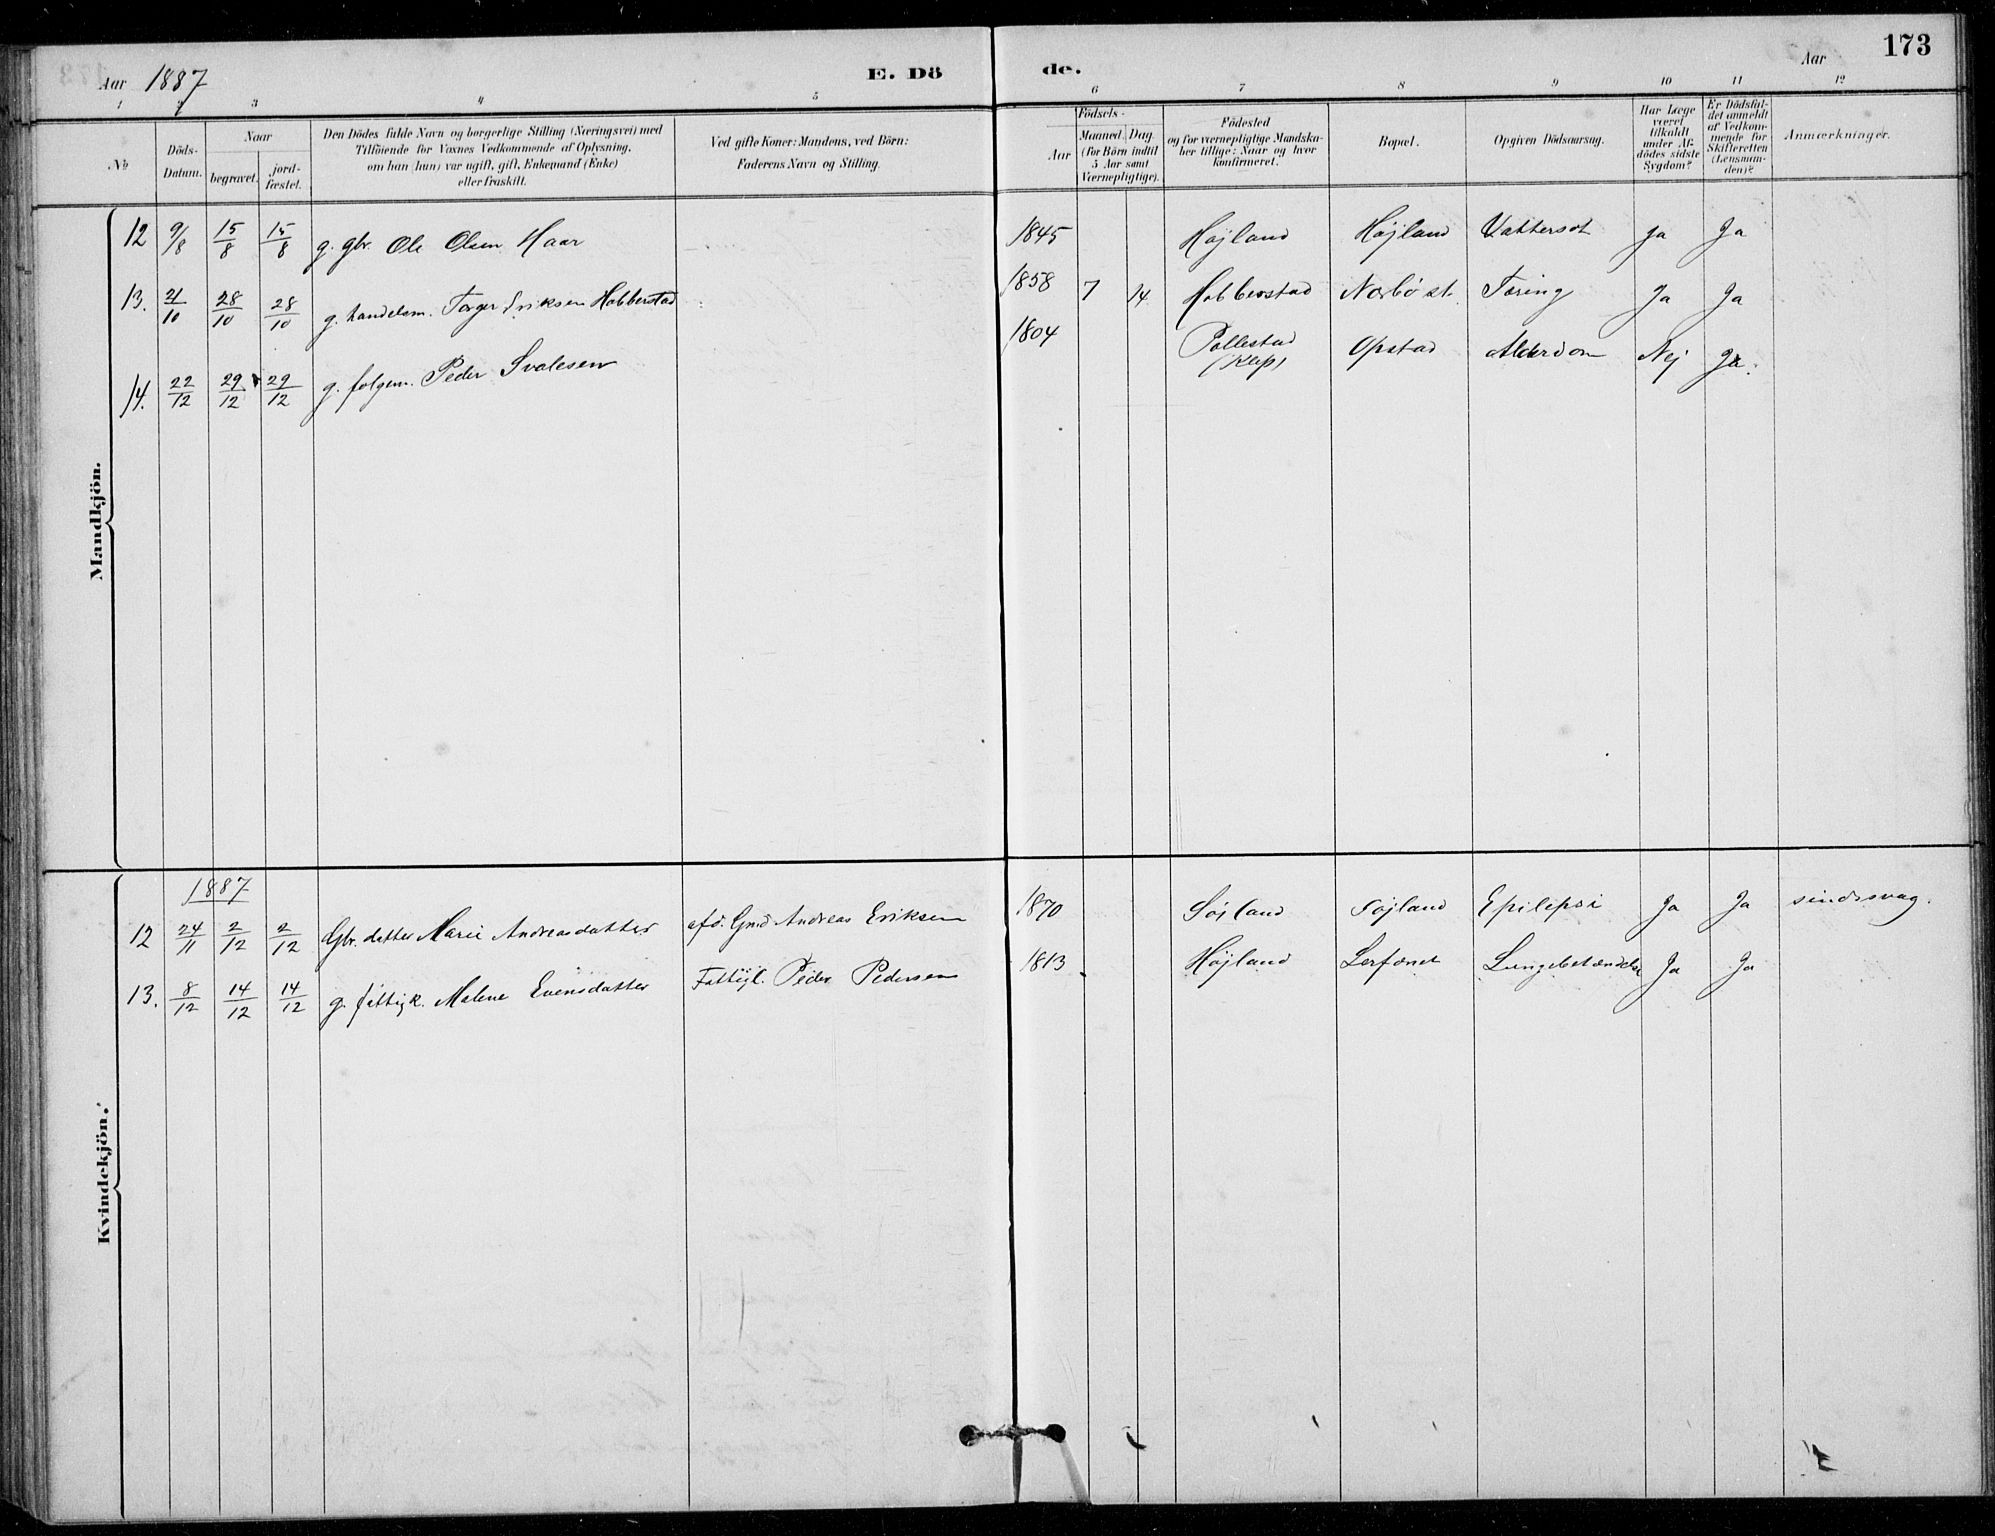 Aar 1887 E. Dö de. Aar 173
1 2 3 4 5 6 7 8 9 10 11 12
No
Döds-Datum.
Naar
begravet.
jord-fæstet.
Den Dödes fulde Navn og borgerlige Stilling (Næringsvei) med
Tilföiende for Voxnes Vedkommende af Oplysning,
om han (hun) var ugift, gift, Enkemand (Enke)
eller fraskilt.
Ved gifte Koner: Mandens, ved Börn:
Faderens Navn og Stilling.
Födsels-
Aar
Maaned. Dag.
(for Börn indtil
5 Aar samt
Værnepligtige).
Födested
og for værnepligtige Mandska-
ber tillige: Naar og hvor
konfirmeret.
Bopæl.
Opgiven Dödsaarsag.
Har Læge
været
tilkaldt
under Af-
dödes sidste
Sygdom?
Er Dödsfal-
det anmeldt
af Vedkom-
mende for
Skifteretten
(Lensman-
den)?
Anmærkninger.
Mandkjön.
12 9/8 15/8 15/8 g. gbr. Ole Olsen Haar 1845 Højland Højland Vattersot Ja Ja
13. 21/10 28/10 28/10 g. handelsm. Torger Eriksen Hobberstad 1858 7 14 Hobberstad Nærbø st. Tæring Ja Ja
14. 22/12 29/12 29/12 g. folgem. Peder Svalesen 1804 Pollestad (Klep) Opstad Alderdom Nej Ja.
Kvindekjön.
1887
12 24/11 2/12 2/12 Gbr. datter Marie Andreasdatter afd. Gmd Andreas Eriksen 1870 Søjland Søjland Epilepsi Ja Ja sindssvag.
13. 8/12 14/12 14/12 g. fattigk. Malene Evensdatter Fattigl. Peder Pedersen 1813 Højland Lerfænet Lungebetændelse Ja Ja